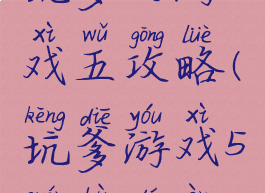 xì wǔ gōng lüè
戏五攻略(
kēng diē yóu xì
坑爹游戏5